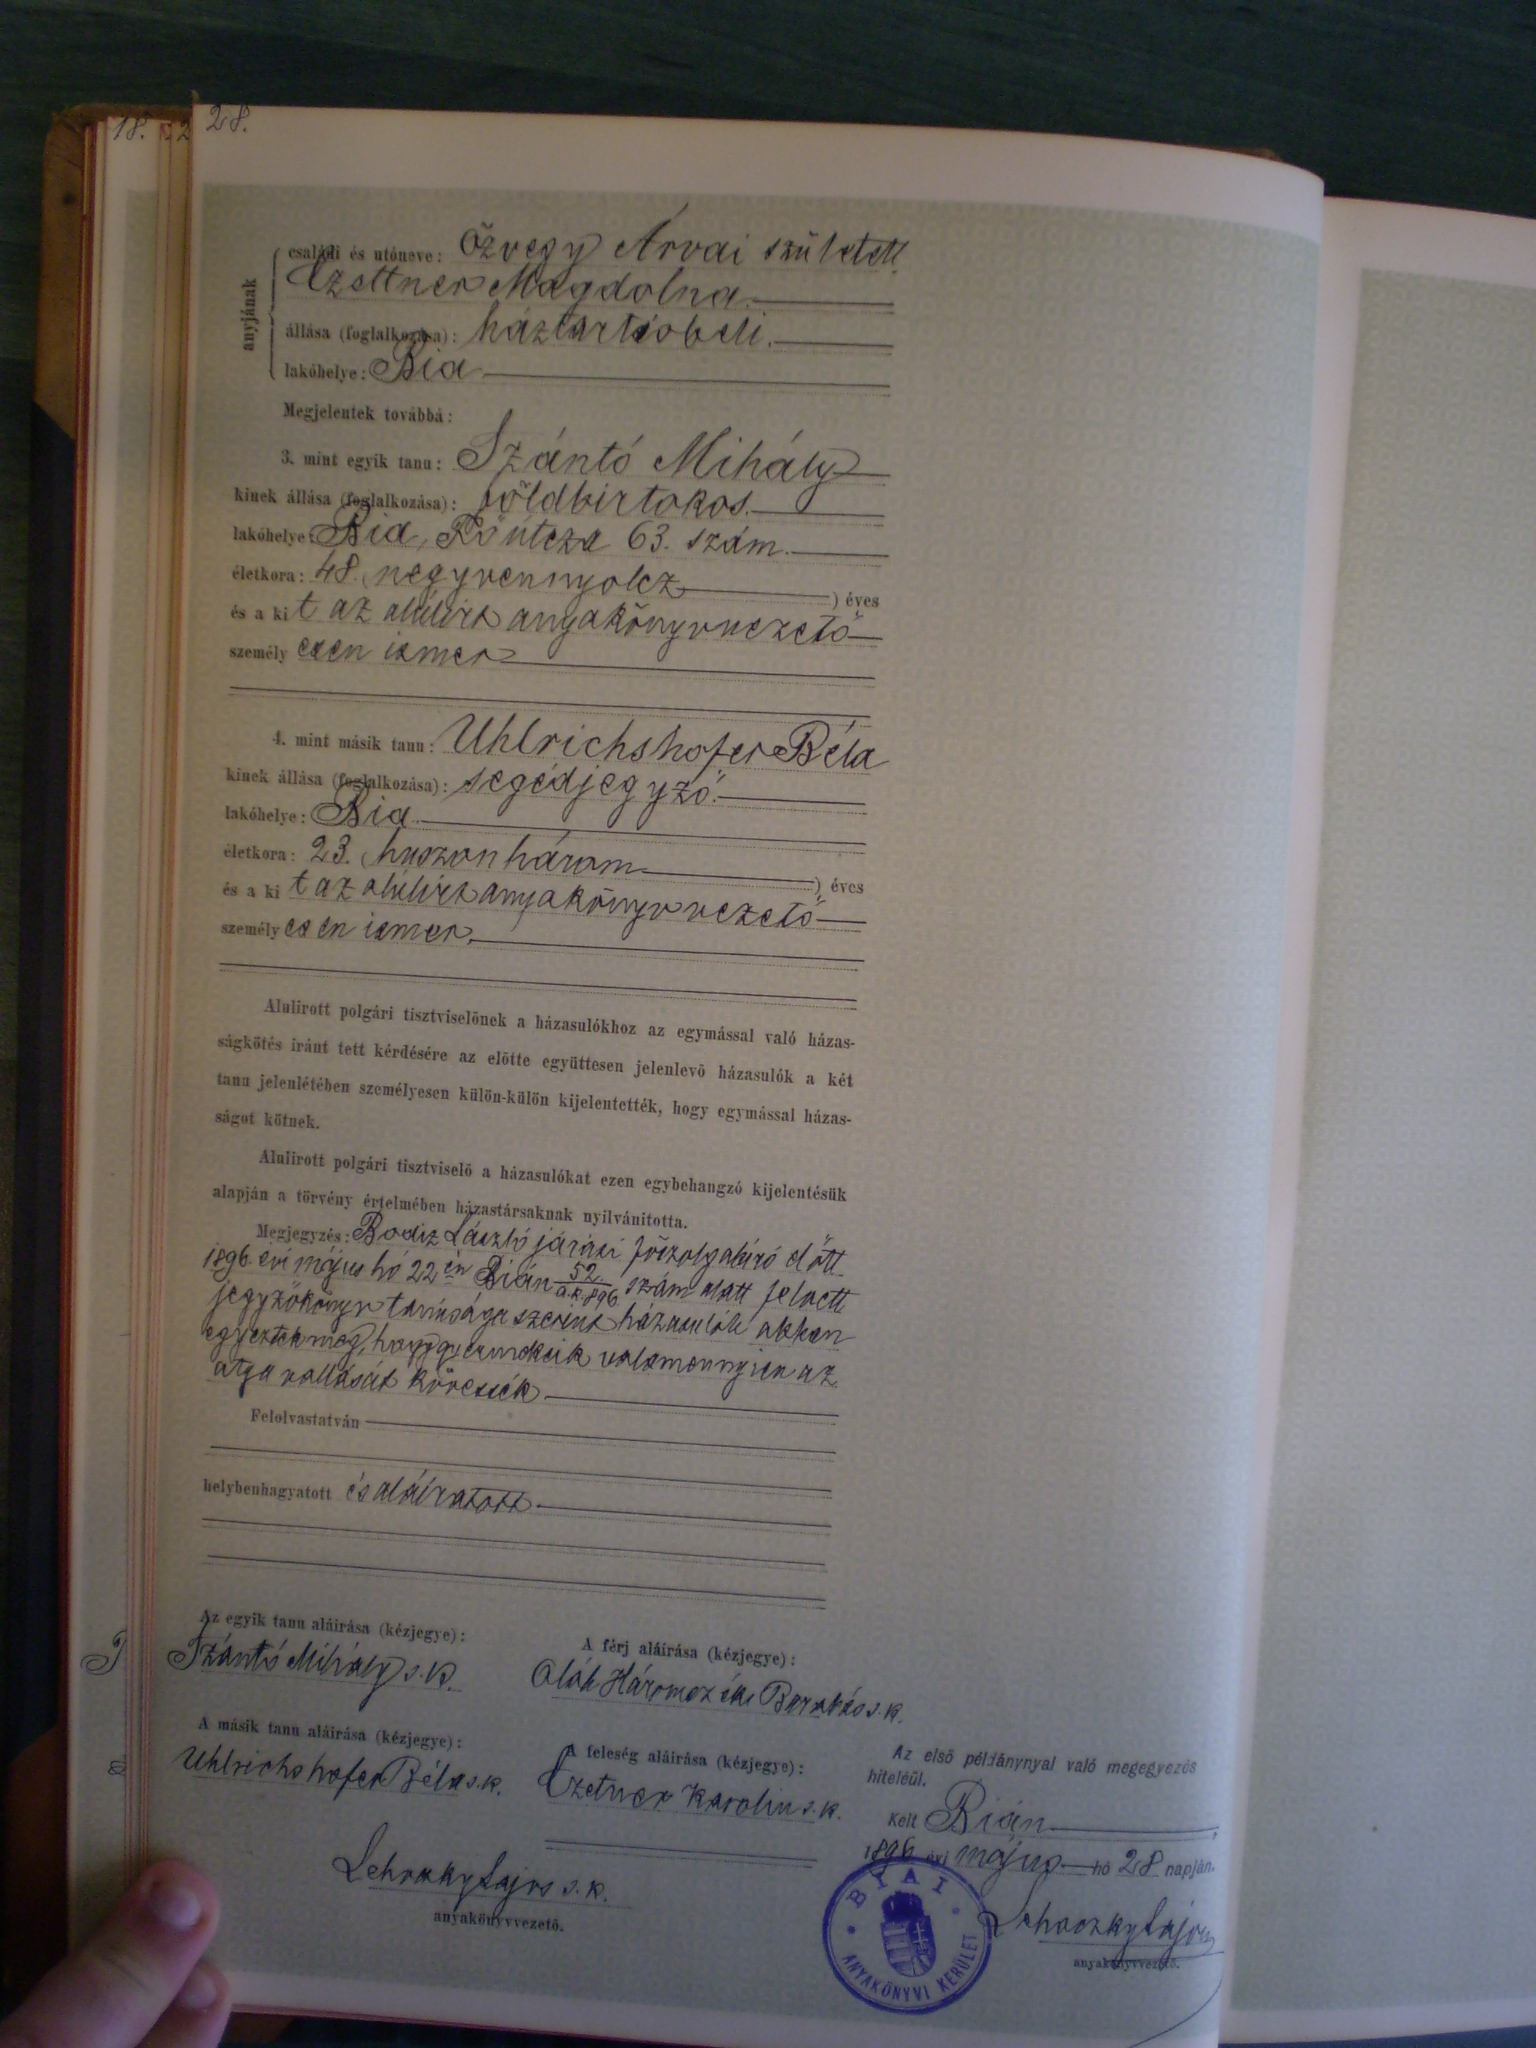 18. 2 28.
anyjának
családi és utóneve: Özvegy Árvai született
Czettner Magdolna.
állása (foglalkozása): háztartásbeli.
lakóhelye: Bia
Megjelentek továbbá:
3. mint egyik tanu: Szántó Mihály
kinek állása (foglalkozása): földbirtokos.
lakóhelye: Bia, Fő útcza 63. szám.
életkora: 48. (negyvennyolcz) éves
és a ki t az alulírt anyakönyvvezető
személy esen ismer
4. mint másik tanu: Uhlrichshofer Béla
kinek állása (foglalkozása): segédjegyző.
lakóhelye: Bia.
életkora: 23. (huszonhárom) éves
és a ki t az alulírt anyakönyvvezető
személy esen ismer.
Alulirott polgári tisztviselőnek a házasulókhoz az egymással való házas-
ságkötés iránt tett kérdésére az előtte együttesen jelenlevő házasulók a két
tanu jelenlétében személyesen külön-külön kijelentették, hogy egymással házas-
ságot kötnek.
Alulirott polgári tisztviselő a házasulókat ezen egybehangzó kijelentésük
alapján a törvény értelmében házastársaknak nyilvánitotta.
Megjegyzés: László járási főszolgabíró előtt
1896 évi május hó 22 én Bián 52 a.k. 896 szám alatt felvett
jegyzőkönyv tanúsága szerint házasulók abban
egyeztek meg, hogy gyermekeik valamennyien az
atya vallását kövessék
Felolvastatván
helybenhagyatott és aláíratott
Az egyik tanu aláirása (kézjegye):
Szántó Mihály s.k.
A férj aláirása (kézjegye):
Oláh Háromszéki Barabás s.k.
A másik tanu aláirása (kézjegye):
Uhlrichshofer Béla s.k.
A feleség aláirása (kézjegye):
Czetner Karolin s.k.
Az első példánynyal való megegyezés
hiteléül.
Kelt Bián,
1896 évi május hó 28 napján.
Lehoczky Lajos s.k.
anyakönyvvezető.
BIAI
ANYAKÖNYVI KERÜLET
Lehoczky Lajos
anyakönyvvezető.